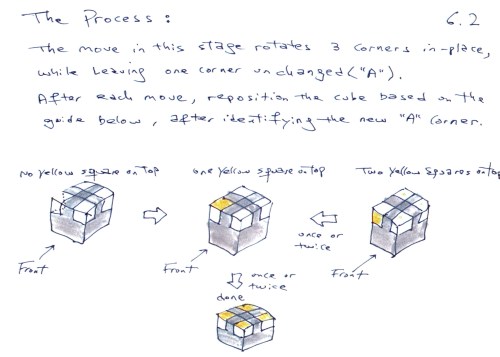 The Process: 6.2
The move in this stage rotates 3 corners in-place,
while leaving one corner unchanged ("A").
After each move, reposition the cube based on the
guide below, after identifying the new "A" corner.
No yellow square on top one yellow square on top Two yellow squares on top
once or
twice
Front Front Front
once or
twice
done